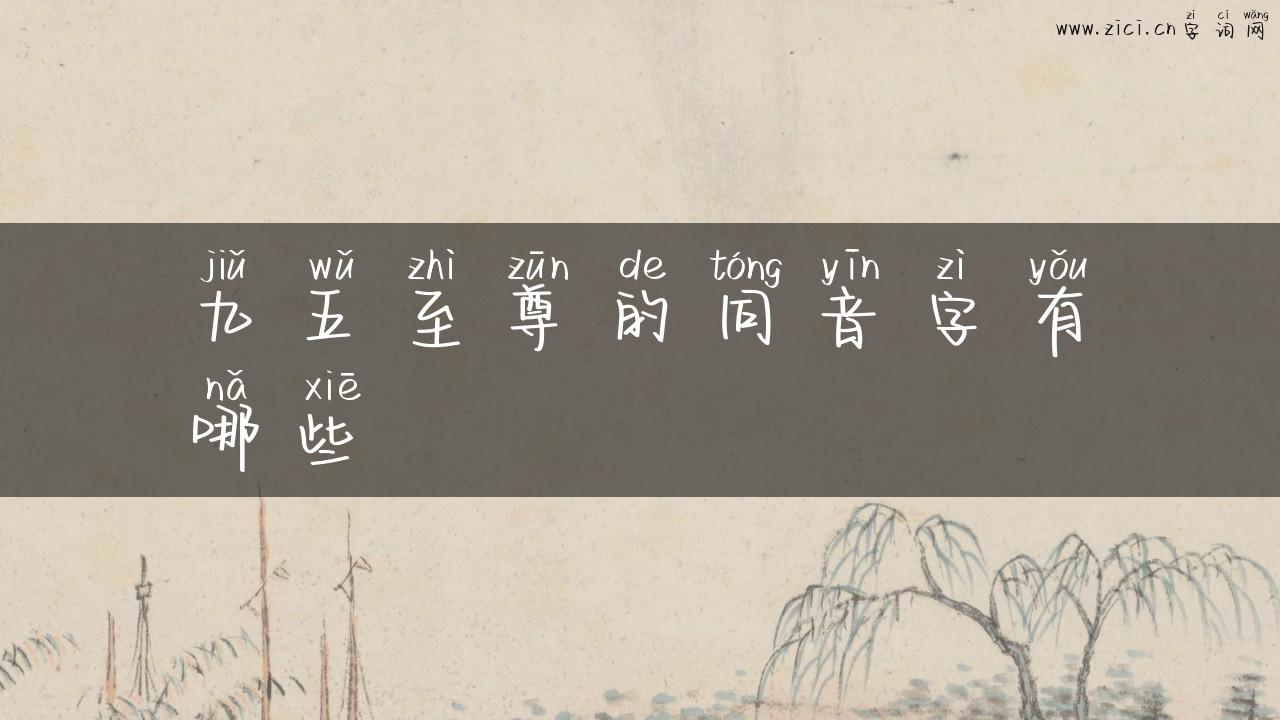 zì cí wǎng
www.zici.cn 字词网
jiǔ wǔ zhì zūn de tóng yīn zì yǒu
九五至尊的同音字有
nǎ xiē
哪些